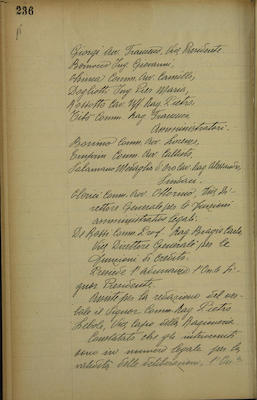 236
Giorgi Avv. Francesco, Vice Presidente
Ing. Giovanni,
Comm. Avv. Camillo,
Dogliotti Ing. Pier Maria,
Rossotto Cav. Uff. Rag. Pietro,
Cito Comm. Rag. Francesco
Amministratori.
Bonino Comm. Avv. Lorenzo,
Comm. Avv. Callisto,
Rag. Alessandro,
Sindaci.
Comm. Avv. Vice Di-
rettore Generale per le funzioni
amministrative legali.
De Rossi Comm. Prof. Rag. Biagio Carlo,
Vice Direttore Generale per le
funzioni di Credito.
Presiede l'adunanza l'On.le Si-
gnor Presidente.
Assiste per la redazione del ver-
bale il Signor Comm. Rag. Pietro
Vice Capo della Ragioneria
Constatato che gli intervenuti
sono in numero legale per la
validità delle deliberazioni, l'On.le